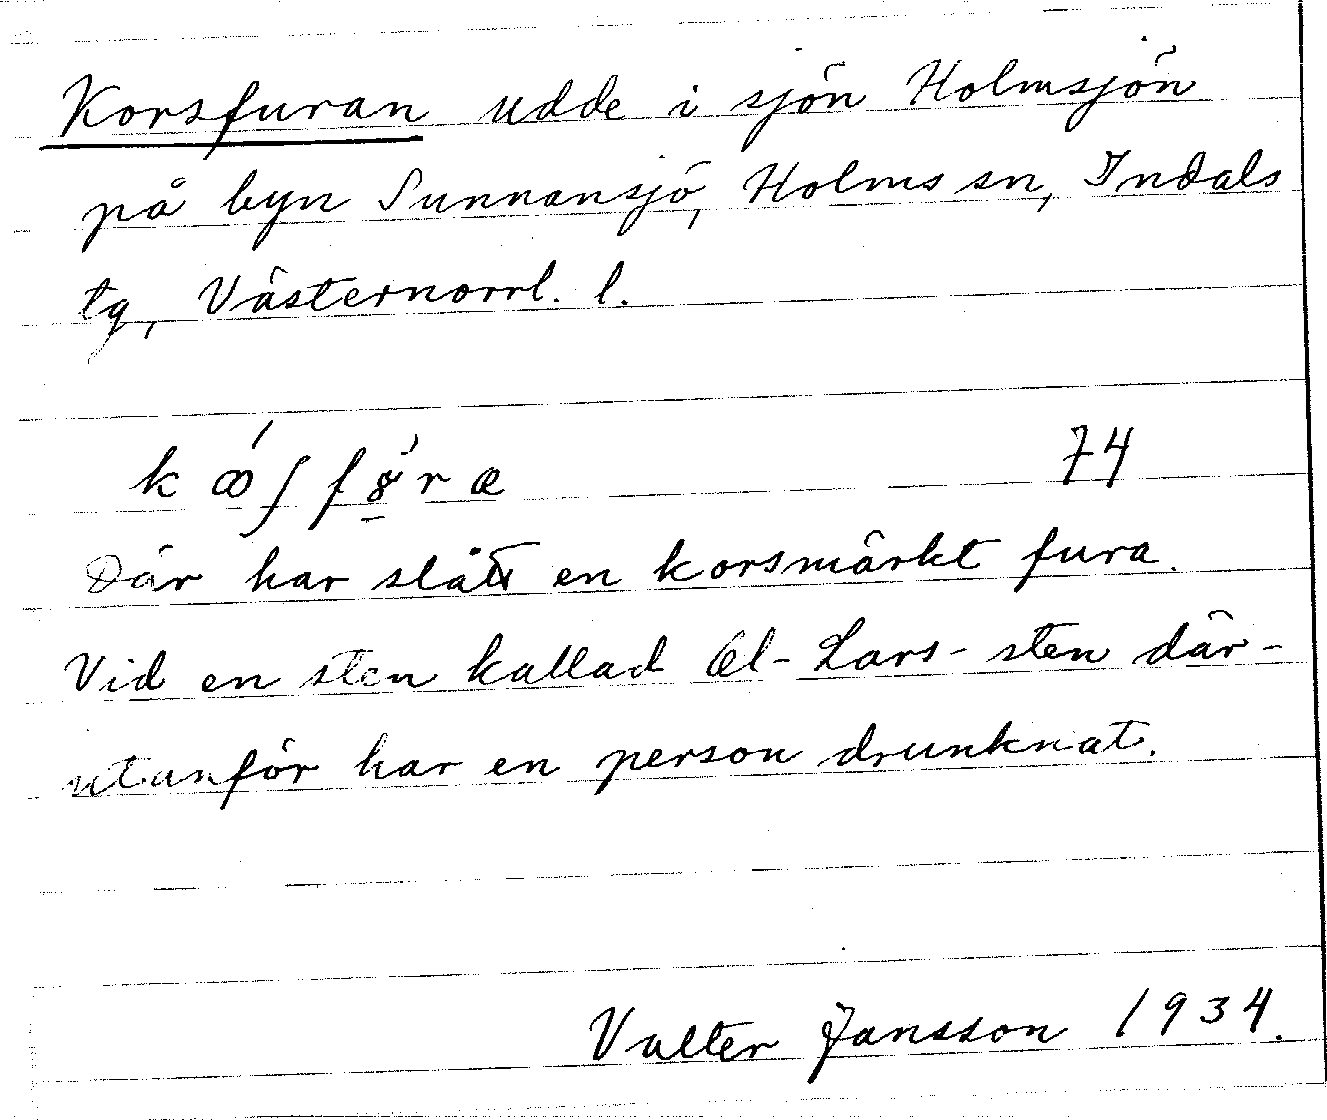 Korsfuran udde i sjön Holmsjön
på byn Sunnansjö, Holms sn, Indals
tg, Västernorrl. l.
74
Där har stått en korsmärkt fura.
Vid en sten kallad Öl-Lars-sten där-
utanför har en person drunknat.
Valter Jansson 1934.